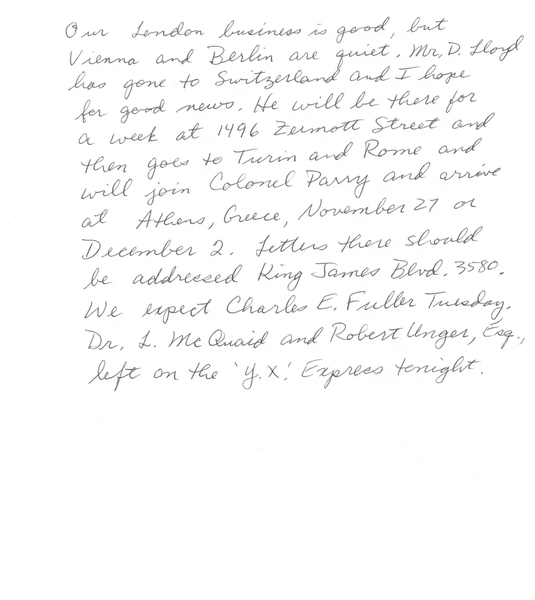 Our London business is good, but
Vienna and Berlin are quiet. Mr. D. Lloyd
has gone to Switzerland and I hope
for good news. He will be there for
a week at 1496 Zermott Street and
then goes to Turin and Rome and
will join Colonel Parry and arrive
at Athens, Greece, November 27 or
December 2. Letters there should
be addressed King James Blvd. 3580.
We expect Charles E. Fuller Tuesday.
Dr. L. McQuaid and Robert Unger, Esq.,
left on the 'Y.X.' Express tonight.